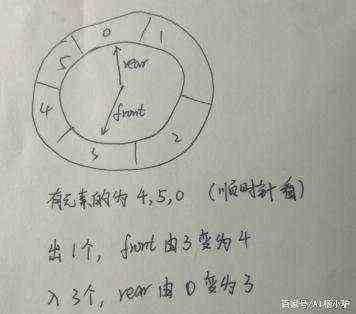 0
1
5
rear
4
front
2
3
有元素的为 4,5,0 (顺时针看)
出1个, front 由3变为4
入3个, rear 由0变为3
百家号/AI极小驴